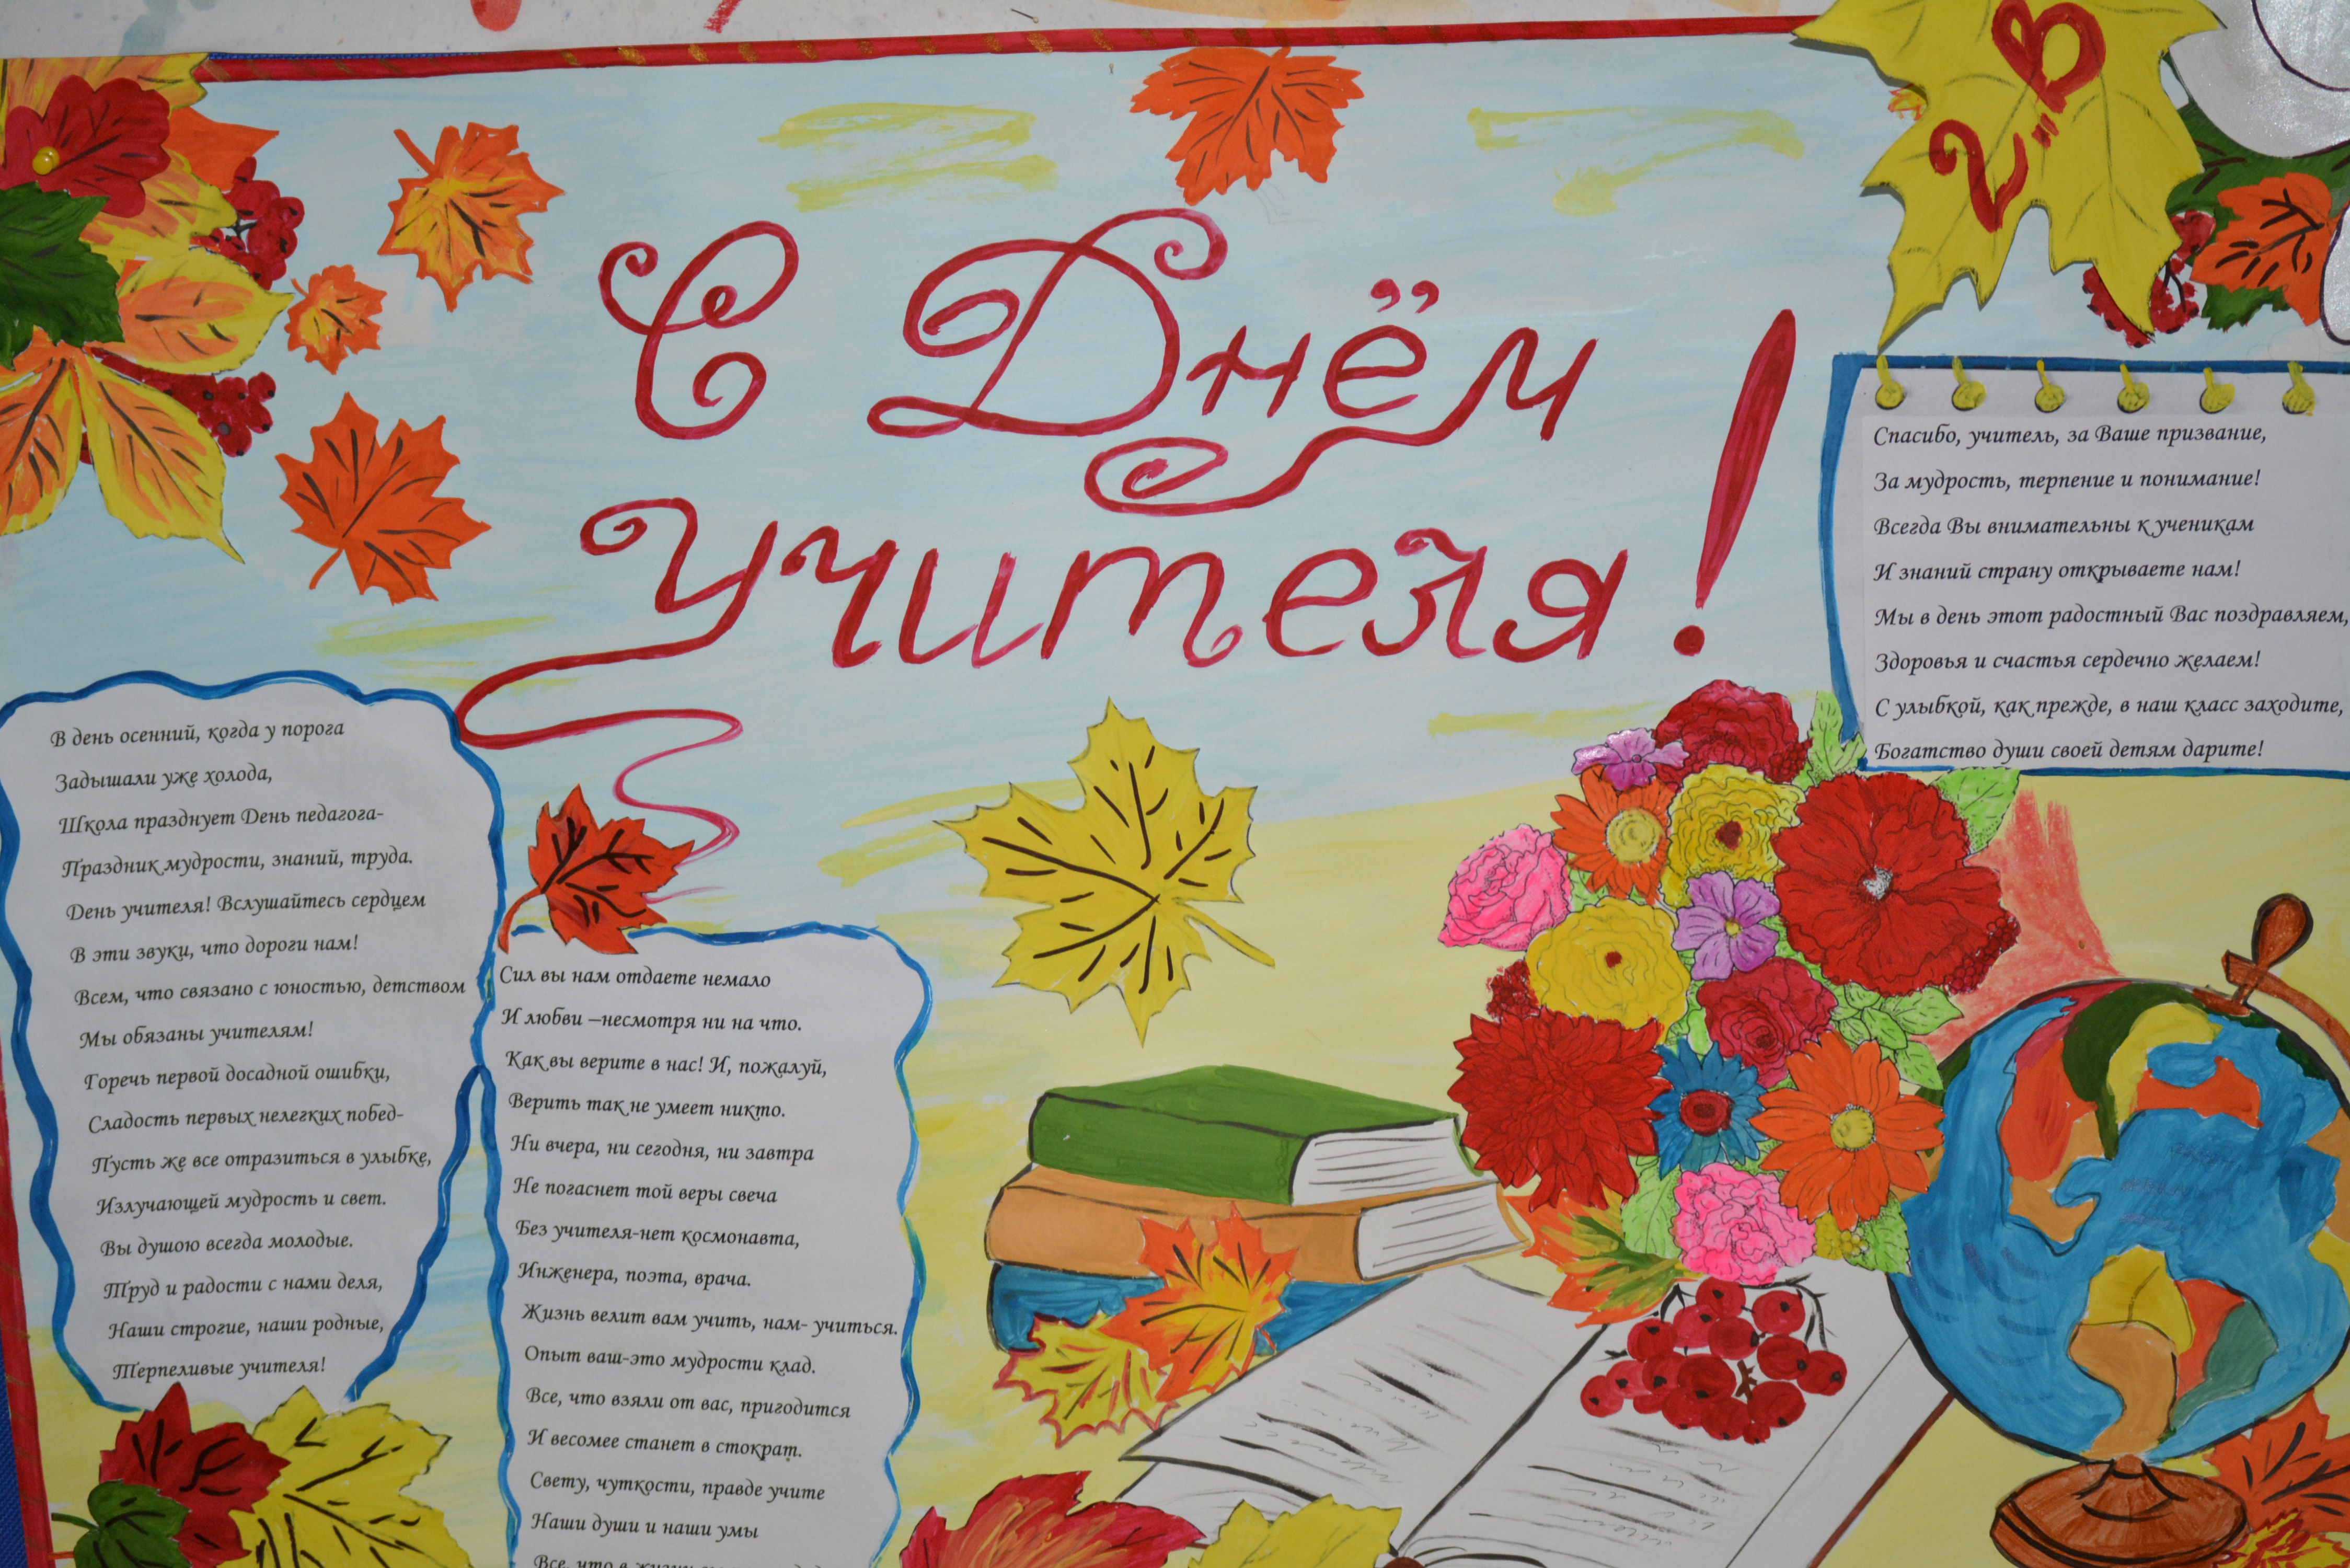 2-В
С Днём
Учителя!
Спасибо, учитель, за Ваше призвание,
За мудрость, терпение и понимание!
Всегда Вы внимательны к ученикам
И знаний страну открываете нам!
Мы в день этот радостный Вас поздравляем,
Здоровья и счастья сердечно желаем!
С улыбкой, как прежде, в наш класс заходите,
Богатство души своей детям дарите!
В день осенний, когда у порога
Задышали уже холода,
Школа празднует День педагога-
Праздник мудрости, знаний, труда.
День учителя! Вслушайтесь сердцем
В эти звуки, что дороги нам!
Всем, что связано с юностью, детством
Мы обязаны учителям!
Горечь первой досадной ошибки,
Сладость первых нелегких побед-
Пусть же все отразиться в улыбке,
Излучающей мудрость и свет.
Вы душою всегда молодые.
Труд и радости с нами деля,
Наши строгие, наши родные,
Терпеливые учителя!
Сил вы нам отдаете немало
И любви –несмотря ни на что.
Как вы верите в нас! И, пожалуй,
Верить так не умеет никто.
Ни вчера, ни сегодня, ни завтра
Не погаснет той веры свеча
Без учителя-нет космонавта,
Инженера, поэта, врача.
Жизнь велит вам учить, нам- учиться.
Опыт ваш-это мудрости клад.
Все, что взяли от вас, пригодится
И весомее станет в стократ.
Свету, чуткости, правде учите
Наши души и наши умы
Все, что в